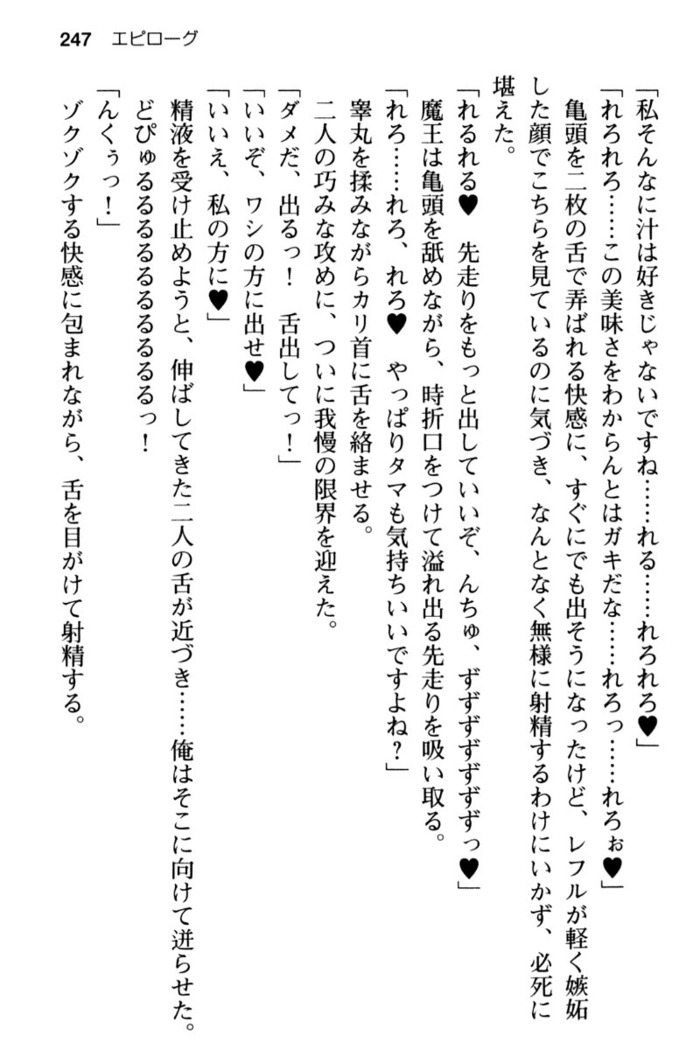 247 エピローグ
「私そんなに汁は好きじゃないですね……れる……れろれろ♥」
「れろれろ……この美味さをわからんとはガキだな……れろっ……れろぉ♥」
亀頭を二枚の舌で弄ばれる快感に、すぐにでも出そうになったけど、レフルが軽く嫉妬
した顔でこちらを見ているのに気づき、なんとなく無様に射精するわけにいかず、必死に
堪えた。
「れるれる♥　先走りをもっと出していいぞ、んちゅ、ずずずずずずずっ♥」
魔王は亀頭を舐めながら、時折口をつけて溢れ出る先走りを吸い取る。
「れろ……れろ、れろ♥　やっぱりタマも気持ちいいですよね？」
睾丸を揉みながらカリ首に舌を絡ませる。
二人の巧みな攻めに、ついに我慢の限界を迎えた。
「ダメだ、出るっ！　舌出してっ！」
「いいぞ、ワシの方に出せ♥」
「いいえ、私の方に♥」
精液を受け止めようと、伸ばしてきた二人の舌が近づき……俺はそこに向けて迸らせた。
どぴゅるるるるるるるるるるっ！
「んくぅっ！」
ゾクゾクする快感に包まれながら、舌を目がけて射精する。